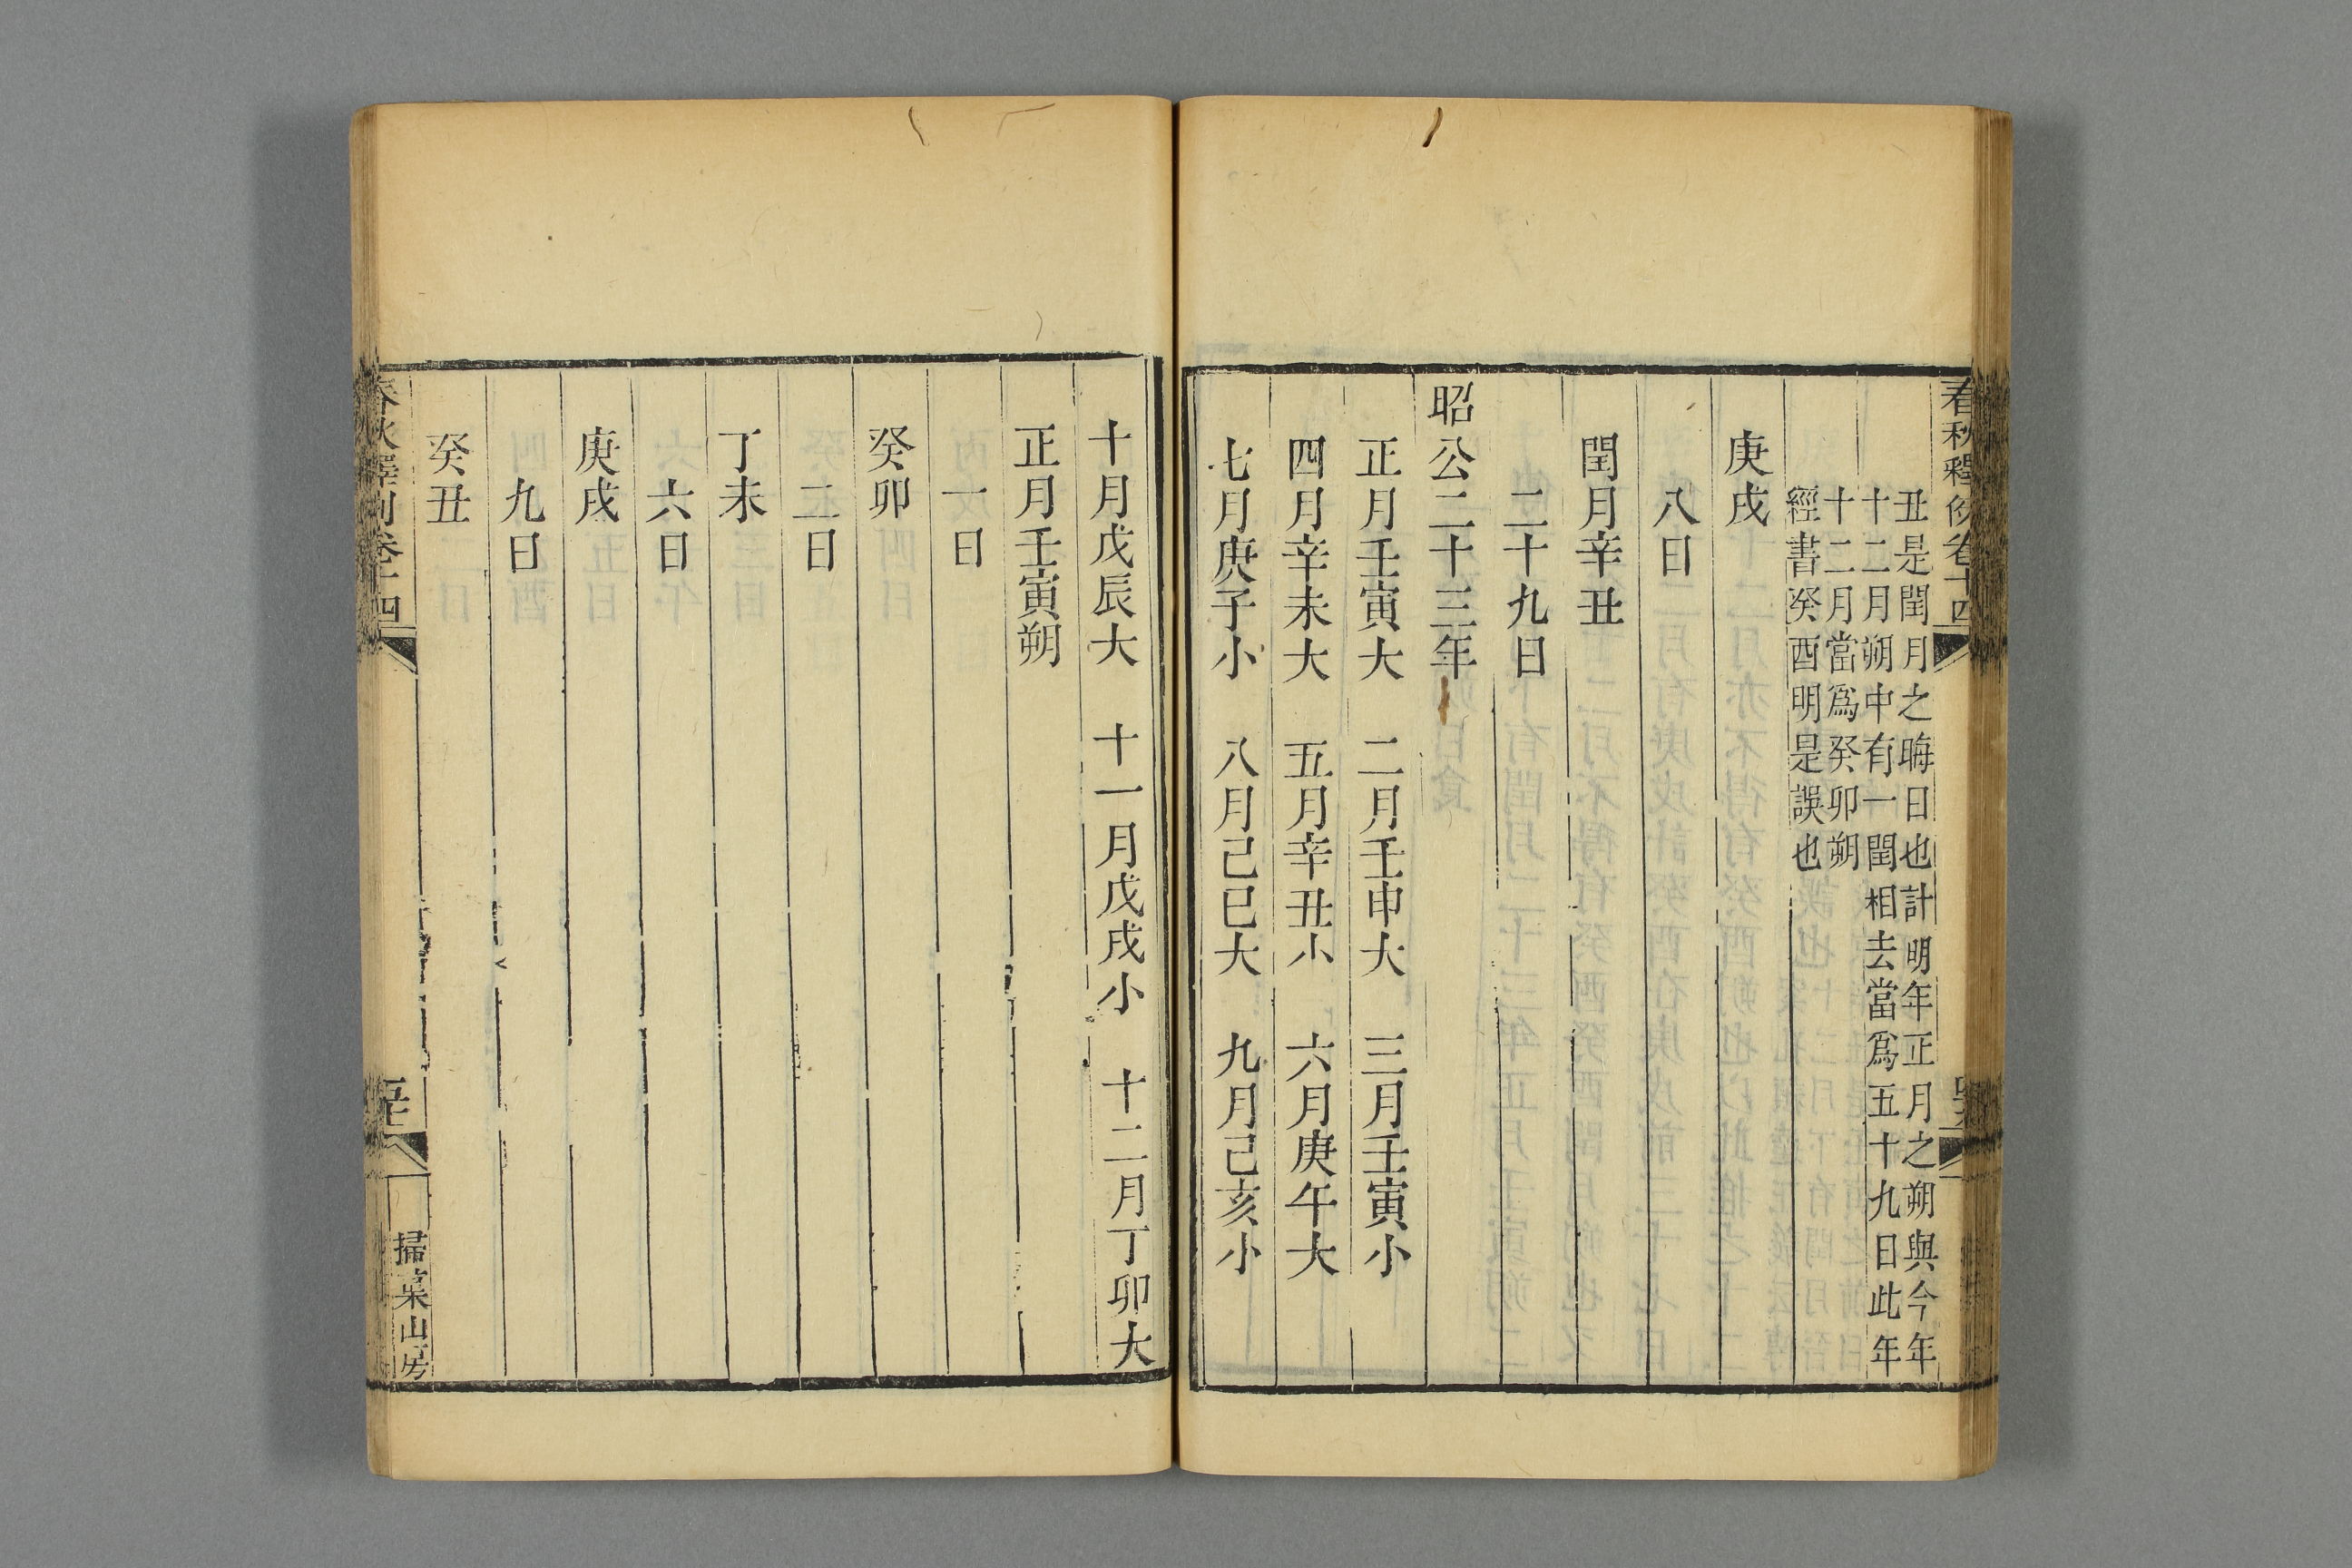 春秋釋例卷十四
丑是閏月之晦日也計明年正月之朔與今年
十二月朔中有一閏相去當爲五十九日此年
十二月當爲癸卯朔
經書癸酉明是誤也
庚戌
八日
閏月辛丑
二十九日
昭公二十三年
正月壬寅大 二月壬申大 三月壬寅小
四月辛未大 五月辛丑小 六月庚午大
七月庚子小 八月己巳大 九月己亥小
十月戊辰大 十一月戊戌小 十二月丁卯大
正月壬寅朔
一日
癸卯
二日
丁未
六日
庚戌
九日
癸丑
春秋釋例卷十四
掃葉山房